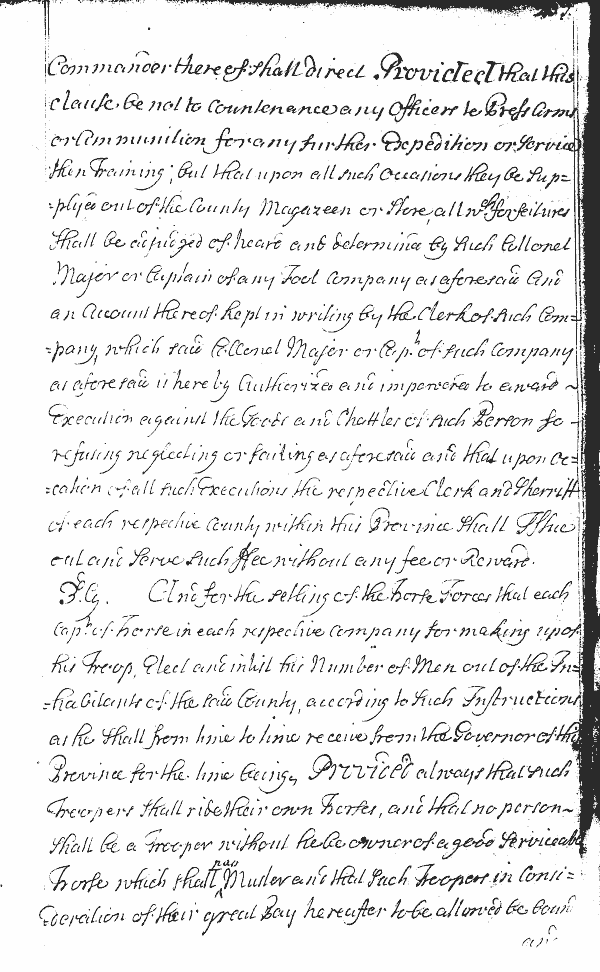 Commander thereof shall direct Provided that this
clause be not to Countenance any Officers to Press Arms
or Ammunition for any further Expedition or Service
then Training; but that upon all such Occasions they be Sup=
=plyed out of the County Magazeen or Store, all wch forfeitures
shall be adjudged of heard and determined by such Collonel
Major or Captain of any Foot Company as aforesaid And
an Account thereof kept in writing by the Clerk of such Com=
=pany, which said Collonel Major or Capt of such Company
as aforesaid is hereby Authorized and impowered to award ~
Execution against the Goods and Chattles of such Person so -
refusing neglecting or failing as aforesaid and that upon oc=
=cation of all such Executions the respective Clerk and Sherriff
of each respective County within this Province shall Issue
out and Serve such Fee without any fee or Reward.
And for the setting of the horse Forces that each
Capt of horse in each respective Company for making up of
his Troop, Elect and inlist his Number of Men out of the In=
=habitants of the said County, according to such Instructions
as he shall from time to time receive from the Governor of the
Province for the time being, Provided always that such
Troopers shall ride their own horses, and that no person~
shall be a Trooper without he be owner of a good Serviceable
horse which shall pass Muster and that such Troopers in Consi=
=deration of their great Pay hereafter to be allowed be bound
and